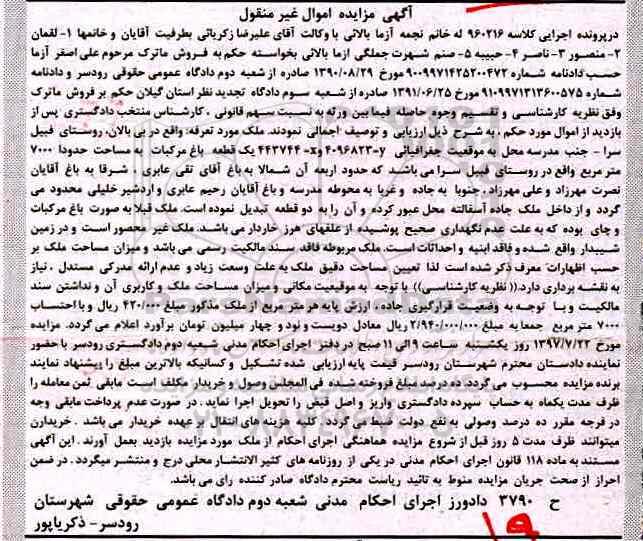 آگهی مزایده اموال غیر منقول
درپرونده اجرایی کلاسه ۹۶۰۲۱۶ له خانم نجمه آزما بالائی با وکالت آقای علیرضا زکریائی بطرفیت آقایان و خانمها ۱- لقمان
۲- منصور ۳- ناصر ۴- حبیبه ۵- صنم شهرت جملگی ازما بالائی بخواسته حکم به فروش ماترک مرحوم علی اصغر آزما
حسب دادنامه شماره ۹۰۰۹۹۷۱۴۲۵۲۰۰۴۷۲ مورخ ۱۳۹۰/۰۸/۲۹ صادره از شعبه دوم دادگاه عمومی حقوقی رودسر و دادنامه
شماره ۹۱۰۹۹۷۱۳۱۳۶۰۰۵۷۵ مورخ ۱۳۹۱/۰۶/۲۵ صادره از شعبه سوم دادگاه تجدید نظر استان گیلان حکم بر فروش ماترک
وفق نظریه کارشناسی و تقسیم وجوه حاصله فیما بین ورثه به نسبت سهم قانونی ، کارشناس منتخب دادگستری پس از
بازدید از اموال مورد حکم ، به شرح ذیل ارزیابی و توصیف اجمالی نمودند. ملک مورد تعرفه: واقع در بی بالان، روستای فبیل
سرا - جنب مدرسه محل با موقعیت جغرافیائی y=۴۰۹۶۸۲۳ و x=۴۴۳۷۴۴ یک قطعه باغ مرکبات به مساحت حدودا ۷۰۰۰
متر مربع واقع در روستای فبیل سرا می باشند که حدود اربعه آن شمالا به باغ آقای تقی عابری ، شرقا به باغ آقایان
نصرت مهرزاد و علی مهرزاد ، جنوبا به جاده و غربا به محوطه مدرسه و باغ آقایان رحیم عابری و اردشیر خلیلی محدود می
گردد و از داخل ملک جاده آسفالته محل عبور کرده و آن را به دو قطعه تبدیل نموده است. ملک قبلا به صورت باغ مرکبات
و چای بوده که به علت عدم نگهداری صحیح پوشیده از علفهای هرز خاردار می باشد. ملک غیر محصور است و در زمین
شیبدار واقع شده و فاقد ابنیه و احداثات است. ملک مربوطه فاقد سند مالکیت رسمی می باشد و میزان مساحت ملک بر
حسب اظهارات معرف ذکر شده است لذا تعیین مساحت دقیق ملک به علت وسعت زیاد و عدم ارائه مدرکی مستدل ، نیاز
به نقشه برداری دارد.(( نظریه کارشناسی)) با توجه به موقعیت مکانی و میزان مساحت ملک و کاربری آن و نداشتن سند
مالکیت و با توجه به وضعیت قرارگیری جاده، ارزش پایه هر متر مربع از ملک مذکور مبلغ ۴۲۰/۰۰۰ ریال و با احتساب
۷۰۰۰ متر مربع جمعا به مبلغ ۲/۹۴۰/۰۰۰/۰۰۰ ریال معادل دویست و نود و چهار میلیون تومان برآورد اعلام می گردد. مزایده
مورخ ۱۳۹۷/۷/۲۲ روز یکشنبه ساعت ۹ الی ۱۱ صبح در دفتر اجرای احکام مدنی شعبه دوم دادگستری رودسر با حضور
نماینده دادستان محترم شهرستان رودسر قیمت پایه ارزیابی شده تشکیل و کسانیکه بالاترین مبلغ را پیشنهاد نمایند
برنده مزایده محسوب می گردد. ده درصد مبلغ فروخته شده فی المجلس وصول و خریدار مکلف است مابقی ثمن معامله را
ظرف مدت یکماه به حساب سپرده دادگستری واریز و اصل فیش را تحویل اجرا نماید . در صورت عدم پرداخت مابقی وجه
در فرجه مقرر ده درصد وصولی به نفع دولت ضبط می گردد . کلیه هزینه های انتقال بر عهده خریدار می باشد . خریداران
میتوانند ظرف مدت ۵ روز قبل از شروع مزایده هماهنگی اجرای احکام از ملک مورد مزایده بازدید بعمل آورند . این آگهی
مستند به ماده ۱۱۸ قانون اجرای احکام مدنی در یکی از روزنامه های کثیر الانتشار محلی درج و منتشر میگردد . در ضمن
احراز از صحت جریان مزایده منوط به تائید ریاست محترم دادگاه صادر کننده رای می باشد.
ح ۳۷۹۰ دادورز اجرای احکام مدنی شعبه دوم دادگاه عمومی حقوقی شهرستان
رودسر - ذکریاپور
۱۹